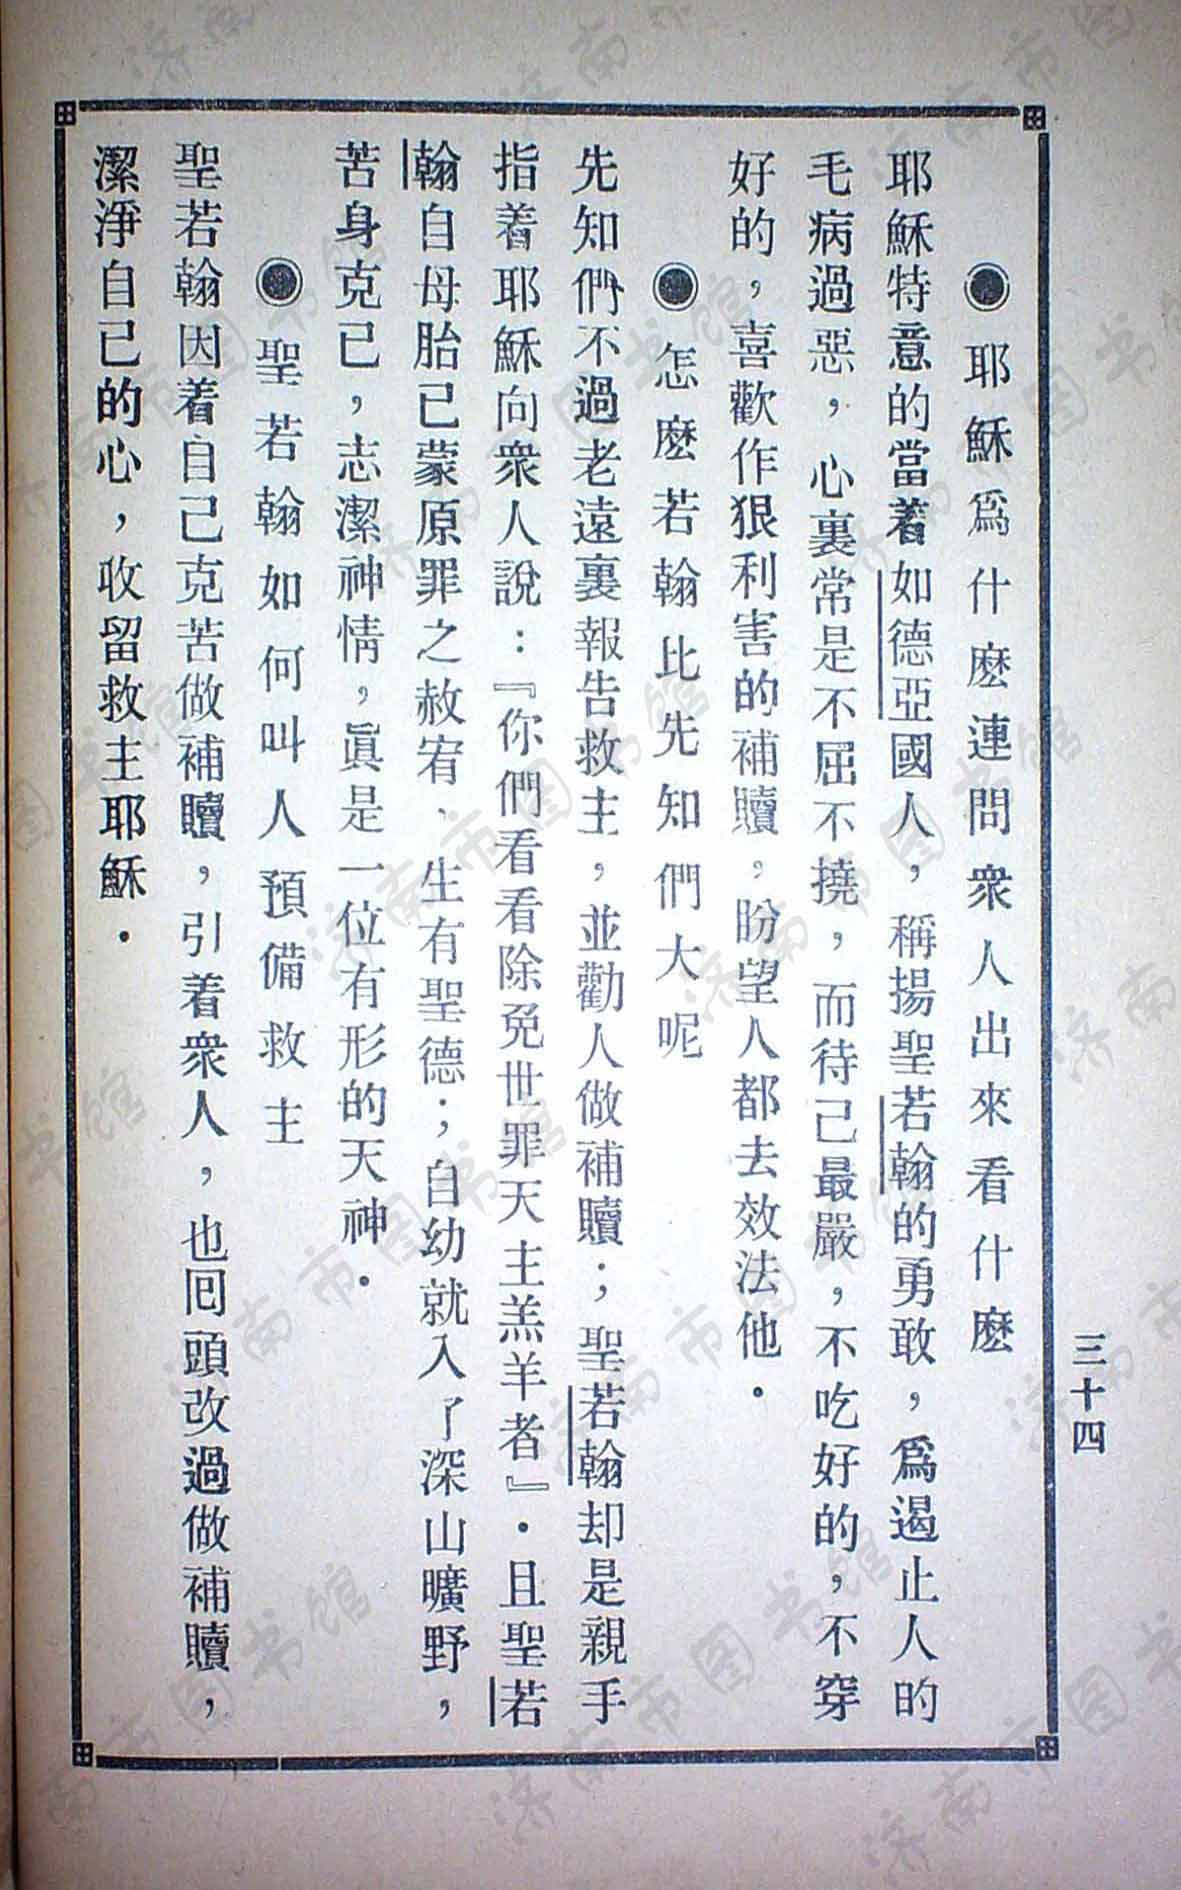 三十四
◉耶穌爲什麽連問衆人出來看什麽
耶穌特意的當着如德亞國人，稱揚聖若翰的勇敢，爲遏止人的
毛病過惡，心裏常是不屈不撓，而待己最嚴，不吃好的，不穿
好的，喜歡作狠利害的補贖，盼望人都去效法他．
◉怎麽若翰比先知們大呢
先知們不過老遠裏報告救主，並勸人做補贖；聖若翰却是親手
指着耶穌向衆人說：『你們看看除免世罪天主羔羊者』．且聖若
翰自母胎已蒙原罪之赦宥、生有聖德；自幼就入了深山曠野，
苦身克已，志潔神情，眞是一位有形的天神．
◉聖若翰如何叫人預備救主
聖若翰因着自己克苦做補贖，引着衆人，也囘頭改過做補贖，
潔淨自己的心，收留救主耶穌．
济南市图书馆